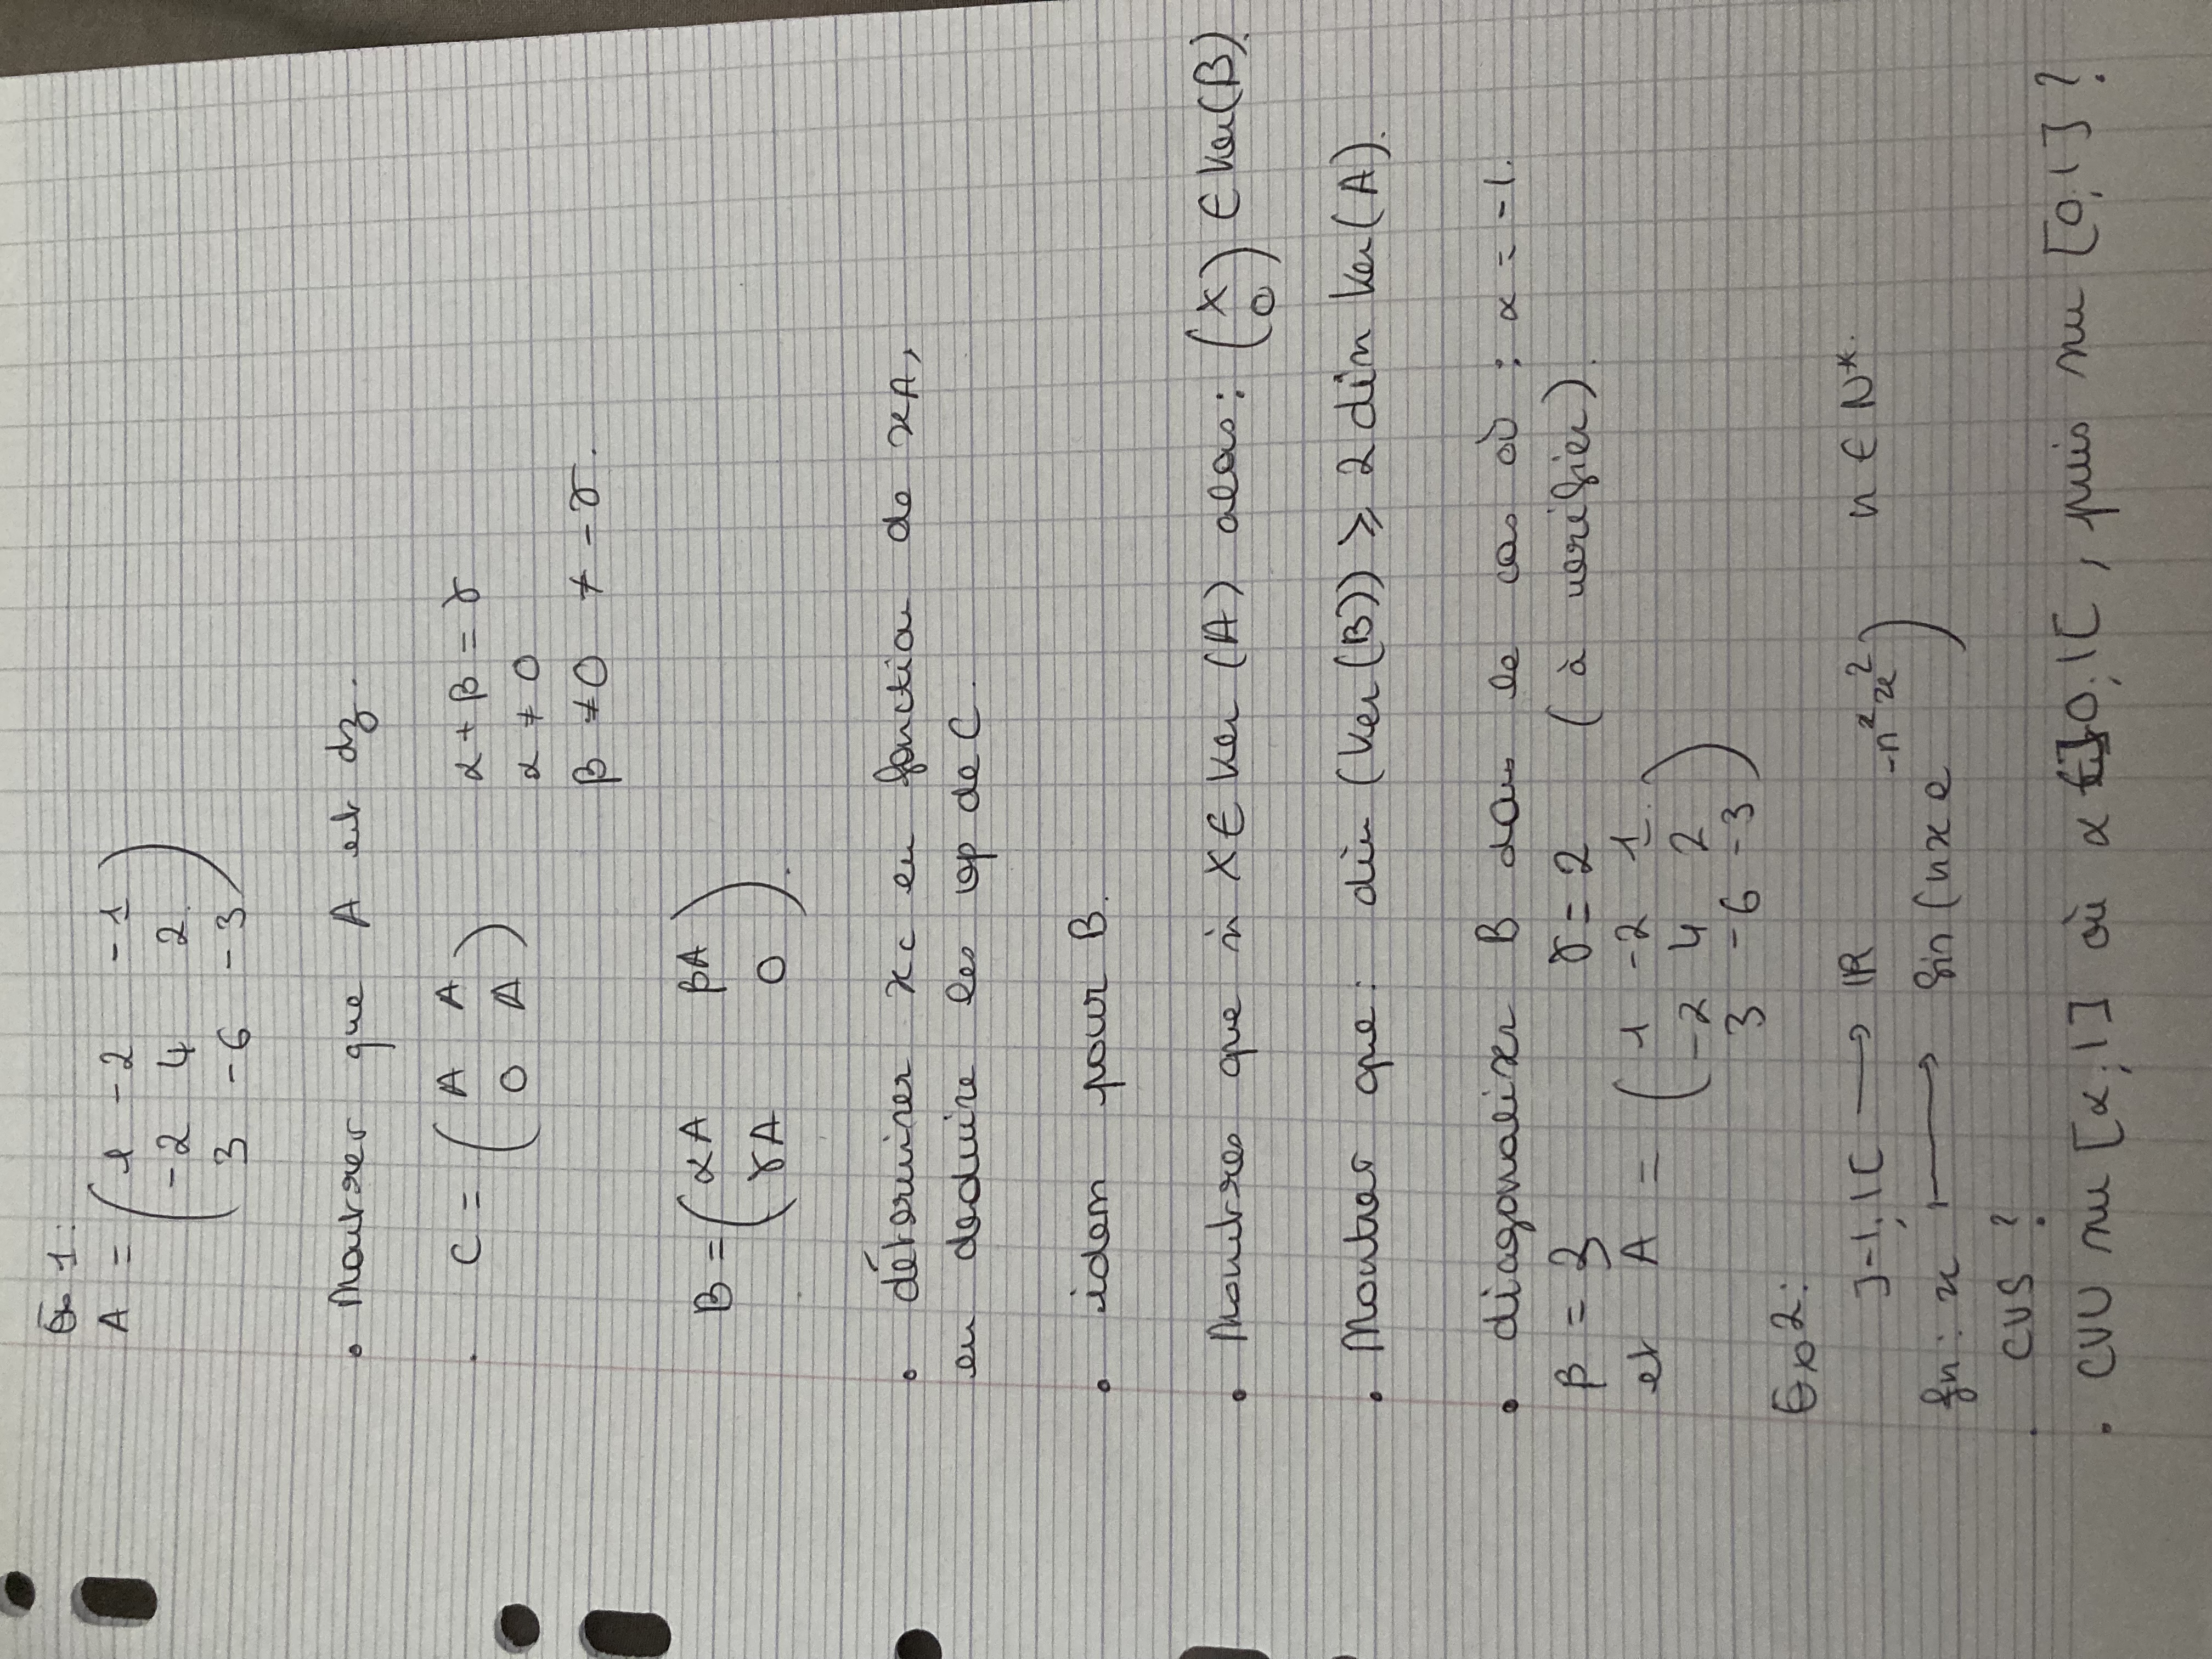 Ex 1:
A = ( 1 -2 -1
-2 4 2
3 -6 -3 )
• Montrer que A est dz.
• C = ( A A
0 A )
α + β = γ
α ≠ 0
β ≠ 0 ≠ -γ.
B = ( αA βA
γA 0 ).
• déterminer χc en fonction de χA,
en déduire les vp de C.
• idem pour B.
• Montrer que si X ∈ ker (A) alors : ( X
0 ) ∈ ker(B).
• Montrer que : dim (ker(B)) ⩾ 2 dim ker(A).
• diagonaliser B dans le cas où : α = -1.
β = 3 γ = 2 (à vérifier).
et A = ( 1 -2 1
-2 4 2
3 -6 -3 )
Exo 2:
]-1;1[ ⟶ ℝ n ∈ N*.
fn: x ⟼ sin(nx e^{-n²x²})
• CVS ?
• CVU su [α;1] où α ]0;1[, puis su [0;1] ?